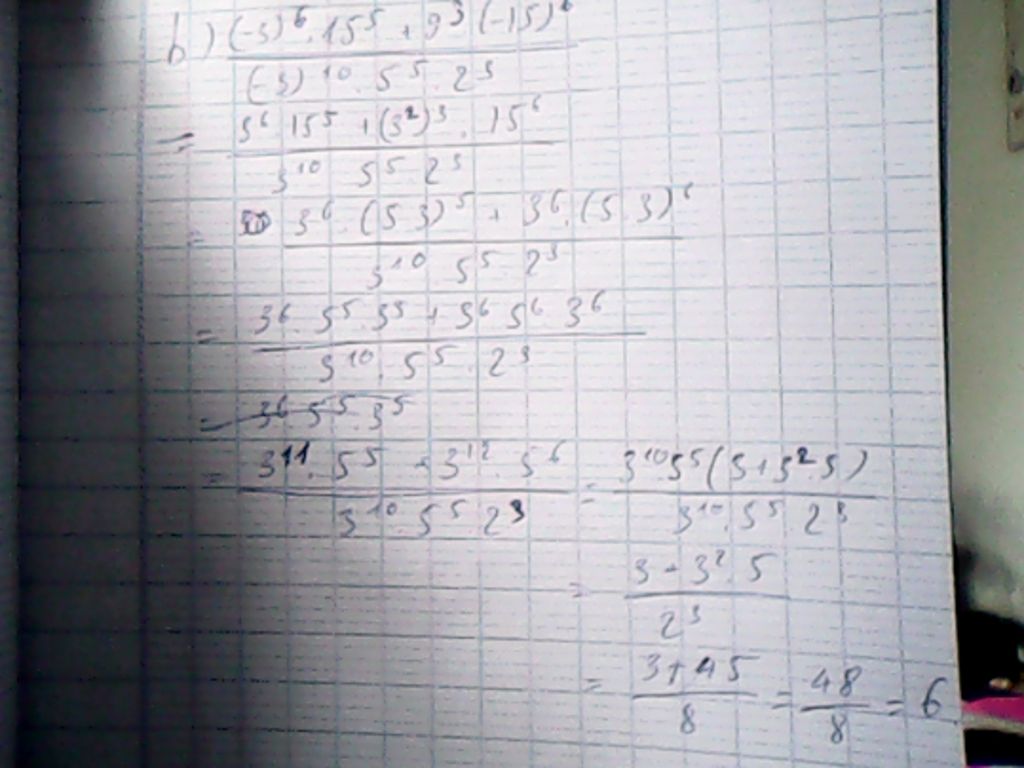 b) (-3)⁶ . 15⁵ + 9³ (-15)⁶
(-3)¹⁰ . 5⁵ . 2³
= 3⁶ 15⁵ + (3²)³ . 15⁶
3¹⁰ 5⁵ 2³
= 3⁶ . (5 3)⁵ + 3⁶ . (5 3)⁶
3¹⁰ 5⁵ 2³
= 3⁶ . 5⁵ . 3⁵ + 3⁶ 5⁶ 3⁶
3¹⁰ . 5⁵ . 2³
= 3⁶ 5⁵ . 3⁵
= 3¹¹ . 5⁵ + 3¹² . 5⁶ = 3¹⁰ 5⁵ (3 + 3² . 5)
3¹⁰ . 5⁵ 2³ 3¹⁰ . 5⁵ 2³
= 3 + 3² . 5
2³
= 3 + 45 = 48 = 6
8 8